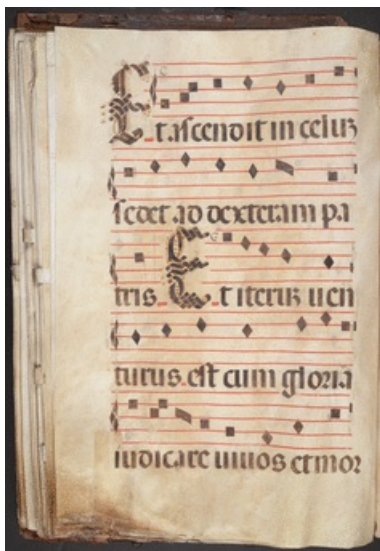 Et ascendit in celuz
sedet ad dexteram pa
tris Et iteruz uen
turus est cum gloria
iudicare uiuos et mor